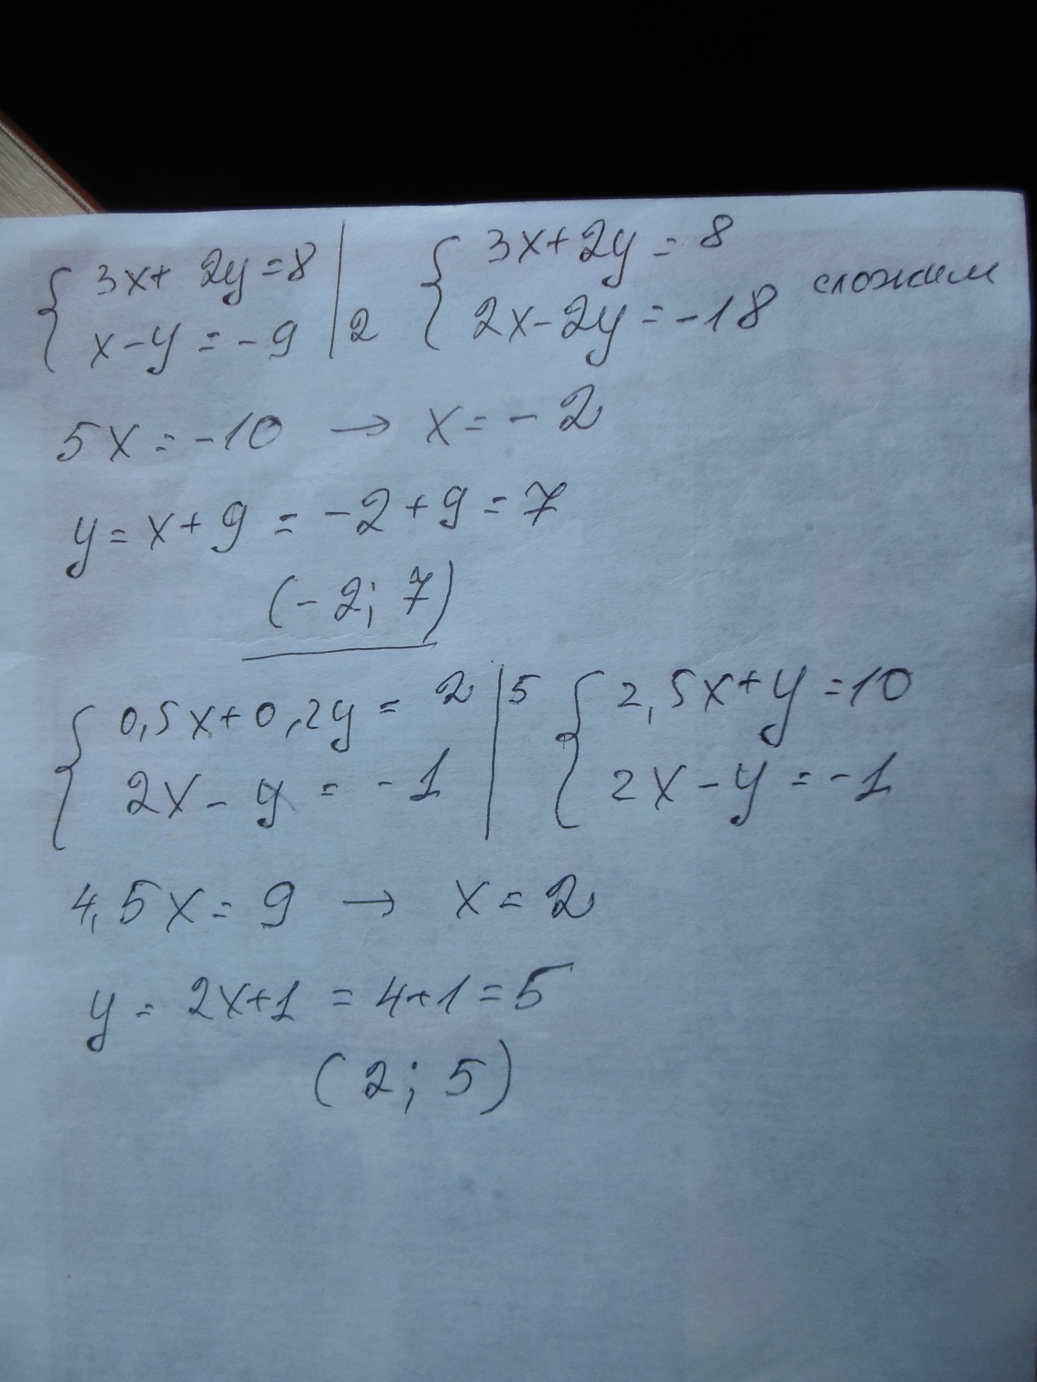 { 3x + 2y = 8 | { 3x + 2y = 8
x - y = -9 | 2 2x - 2y = -18 сложим
5x = -10 → x = -2
y = x + 9 = -2 + 9 = 7
(-2; 7)
{ 0,5x + 0,2y = 2 | 5 { 2,5x + y = 10
2x - y = -1 | 2x - y = -1
4,5x = 9 → x = 2
y = 2x + 1 = 4 + 1 = 5
(2; 5)